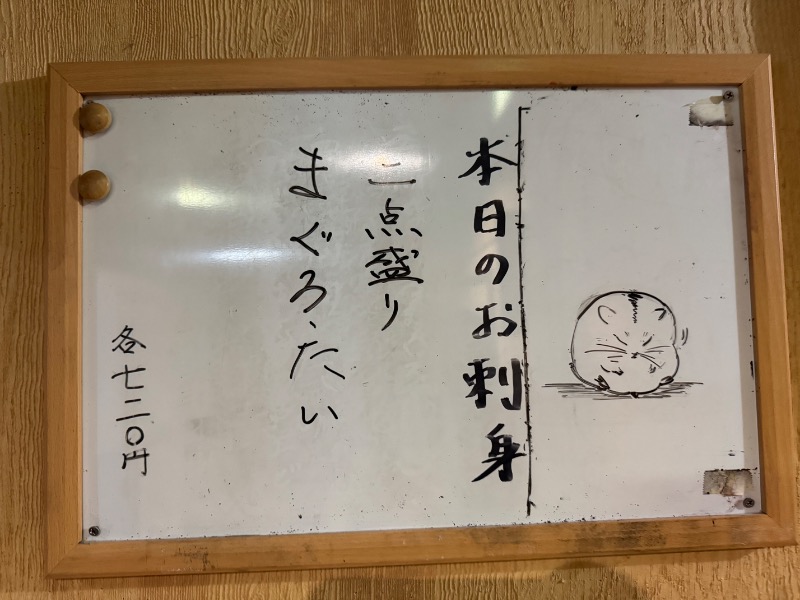 本日のお刺身
二点盛り
まぐろ、たい
各七二〇円